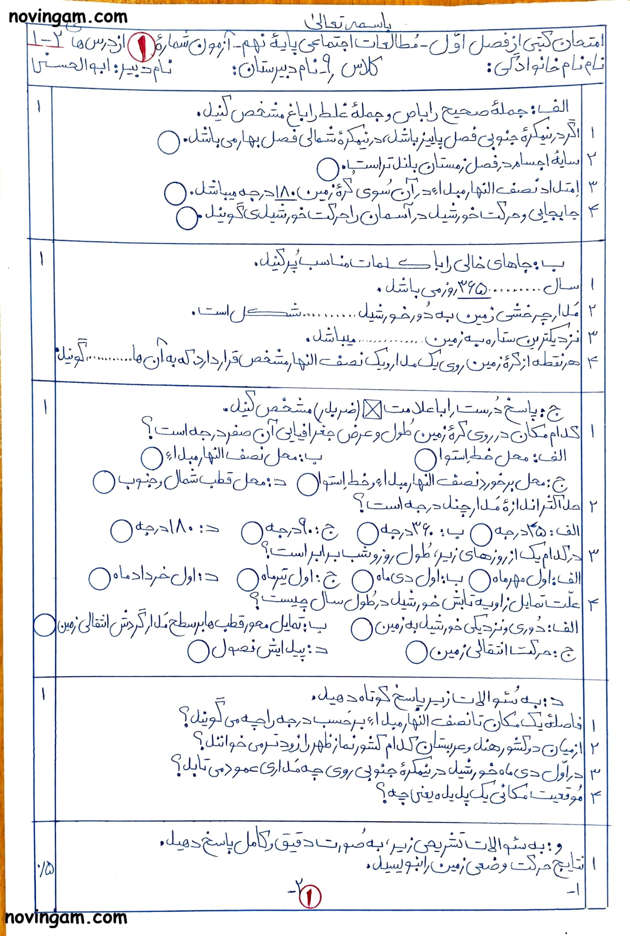 novingam.com
باسمه تعالی
امتحان کتبی از فصل اوّل - مطالعات اجتماعی پایهٔ نهم - آزمون شمارهٔ ۱ از درس‌ها ۲-۱
نام نام خانوادگی: کلاس ۹- نام دبیرستان: نام دبیر: ابوالحسنی
الف: جملهٔ صحیح را با ص و جملهٔ غلط را با غ مشخص کنید. ۱
۱ اگر در نیمکرهٔ جنوبی فصل پاییز باشد، در نیمکرهٔ شمالی فصل بهار می باشد.
۲ سایهٔ اجسام در فصل زمستان بلندتر است.
۳ امتداد نصف النهار مبداء در آن سوی کرهٔ زمین ۱۸۰ درجه میباشد.
۴ جابجایی و حرکت خورشید در آسمان را حرکت خورشیدی گویند.
ب: جاهای خالی را با کلمات مناسب پُر کنید. ۱
۱ سال .......... ۳۶۵ روز می باشد.
۲ مَدار چرخشی زمین به دور خورشید .......... شکل است.
۳ نزدیکترین ستاره به زمین ............ میباشد.
۴ هر نقطه از کرهٔ زمین روی یک مدار و یک نصف النهار مشخص قرار دارد که به آن ها .......... گویند.
ج: پاسخ دُرست را با علامت ☒ (ضربدر) مشخص کنید. ۱
۱ کدام مکان در روی کرهٔ زمین طول و عرض جغرافیایی آن صفر درجه است؟
الف: محل خط اِستوا ب: محل نصف النهار مبداء
ج: محل برخورد نصف النهار مبداء و خط اِستوا د: محل قطب شمال و جنوب
۲ حداکثر اندازهٔ مَدار چند درجه است؟
الف: ۴۵ درجه ب: ۳۶۰ درجه ج: ۹۰ درجه د: ۱۸۰ درجه
۳ در کدام یک از روزهای زیر، طول روز و شب برابر است؟
الف: اول مهرماه ب: اول دی ماه ج: اول تیرماه د: اول خرداد ماه
۴ علّت تمایل زاویه تابش خورشید در طول سال چیست؟
الف: دُوری و نزدیکی خورشید به زمین ب: تمایل محور قطب ها بر سطح مَدار گردش انتقالی زمین
ج: حرکت انتقالی زمین د: پیدایش فصول
د: به سُوالات زیر پاسخ کوتاه دهید. ۱
۱ فاصلهٔ یک مکان تا نصف النهار مبداء بر حَسب درجه را چه می گویند؟
۲ از میان دو کشور هند و عربستان کدام کشور نماز ظهر را زودتر می خوانند؟
۳ در اَوّل دی ماه خورشید در نیمکرهٔ جنوبی روی چه مَداری عمود می تابد؟
۴ مُوقعیت مکانی یک پدیده یعنی چه؟
و: به سُوالات تشریحی زیر، به صُورت دقیق و کامل پاسخ دهید.
۱ نتایج حرکت وضعی زمین را بنویسید. ۰/۵
۱-
۲-
۱
novingam.com